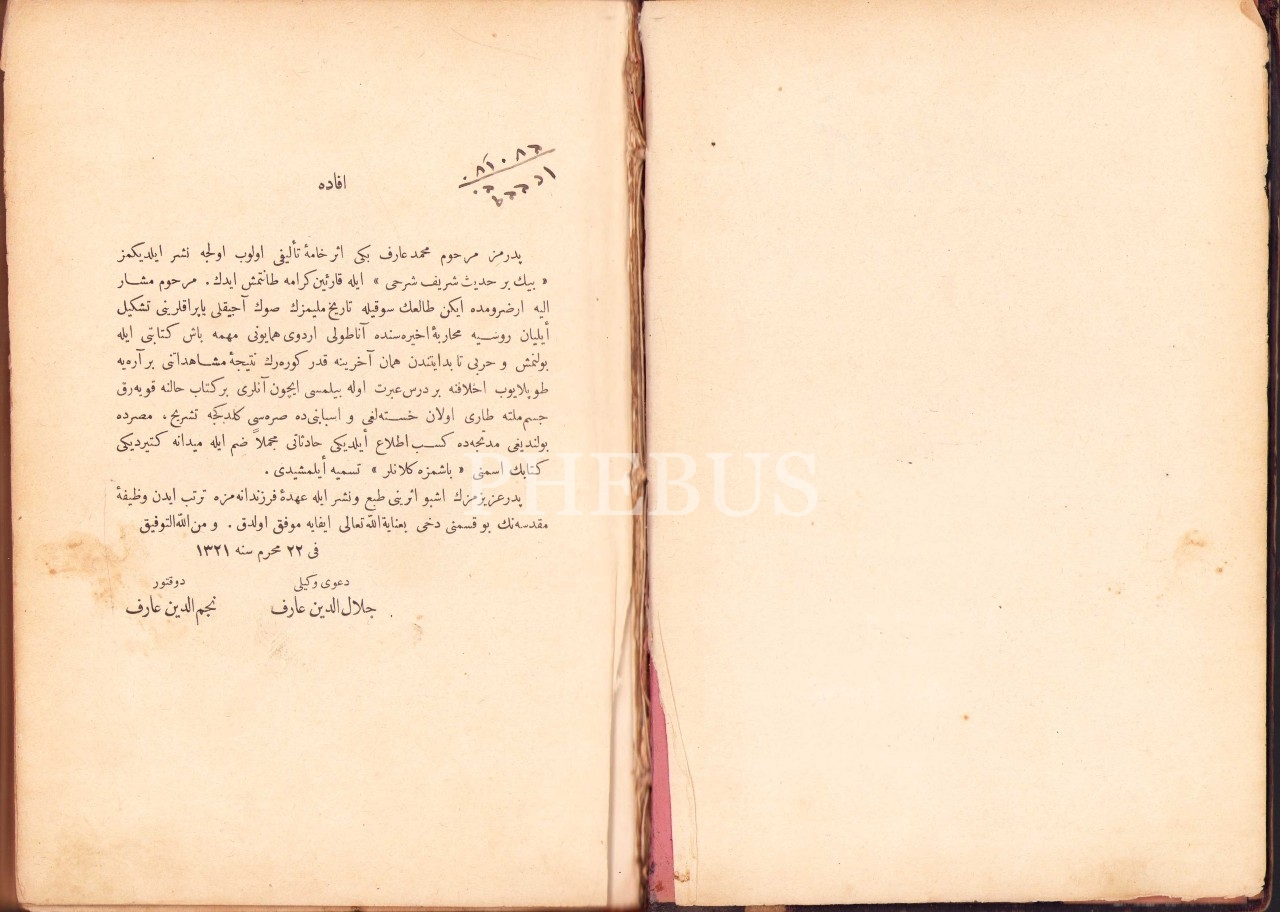 افاده
پدرمز مرحوم محمد عارف بكی اثر خامهٔ تألیفی اولوب اولجه نشر ایلدیكمز
« بیك بر حدیث شریف شرحی » ایله قارئین كرامه طانتمش ایدك . مرحوم مشار
الیه ارضرومده ایكن طالعك سوقیله تاریخ ملیمزك صوك آجیقلی یاپراقلرینی تشكیل
أیلیان روسیه محاربهٔ اخیره‌سنده آناطولی اردوی همایونی مهمه باش كتابتی ایله
بولنمش و حربی تا بدایتندن همان آخرینه قدر كوره‌رك نتیجهٔ مشاهداتنی بر آره‌یه
طوپلایوب اخلافنه بر درس عبرت اوله بیلمسی ایچون آنلری بر كتاب حالنه قویه‌رق
جسم ملته طاری اولان خسته‌لغی و اسبابنی‌ده صره‌سی كلدكجه تشریح ، مصرده
بولندیغی مدتجه‌ده كسب اطلاع أیلدیكی حادثاتی مجملاً ضم ایله میدانه كتیردیكی
كتابك اسمنی « باشمزه كلانلر » تسمیه أیلمشیدی .
پدر عزیزمزك اشبو اثرینی طبع ونشر ایله عهدهٔ فرزندانه‌مزه ترتب ایدن وظیفهٔ
مقدسه‌نك بو قسمنی دخی بعنایة الله تعالی ایفایه موفق اولدق . و من الله التوفیق
فی ٢٢ محرم سنه ١٣٢١
دعوی وكیلی دوقتور
جلال الدین عارف نجم الدین عارف
PHEBUS